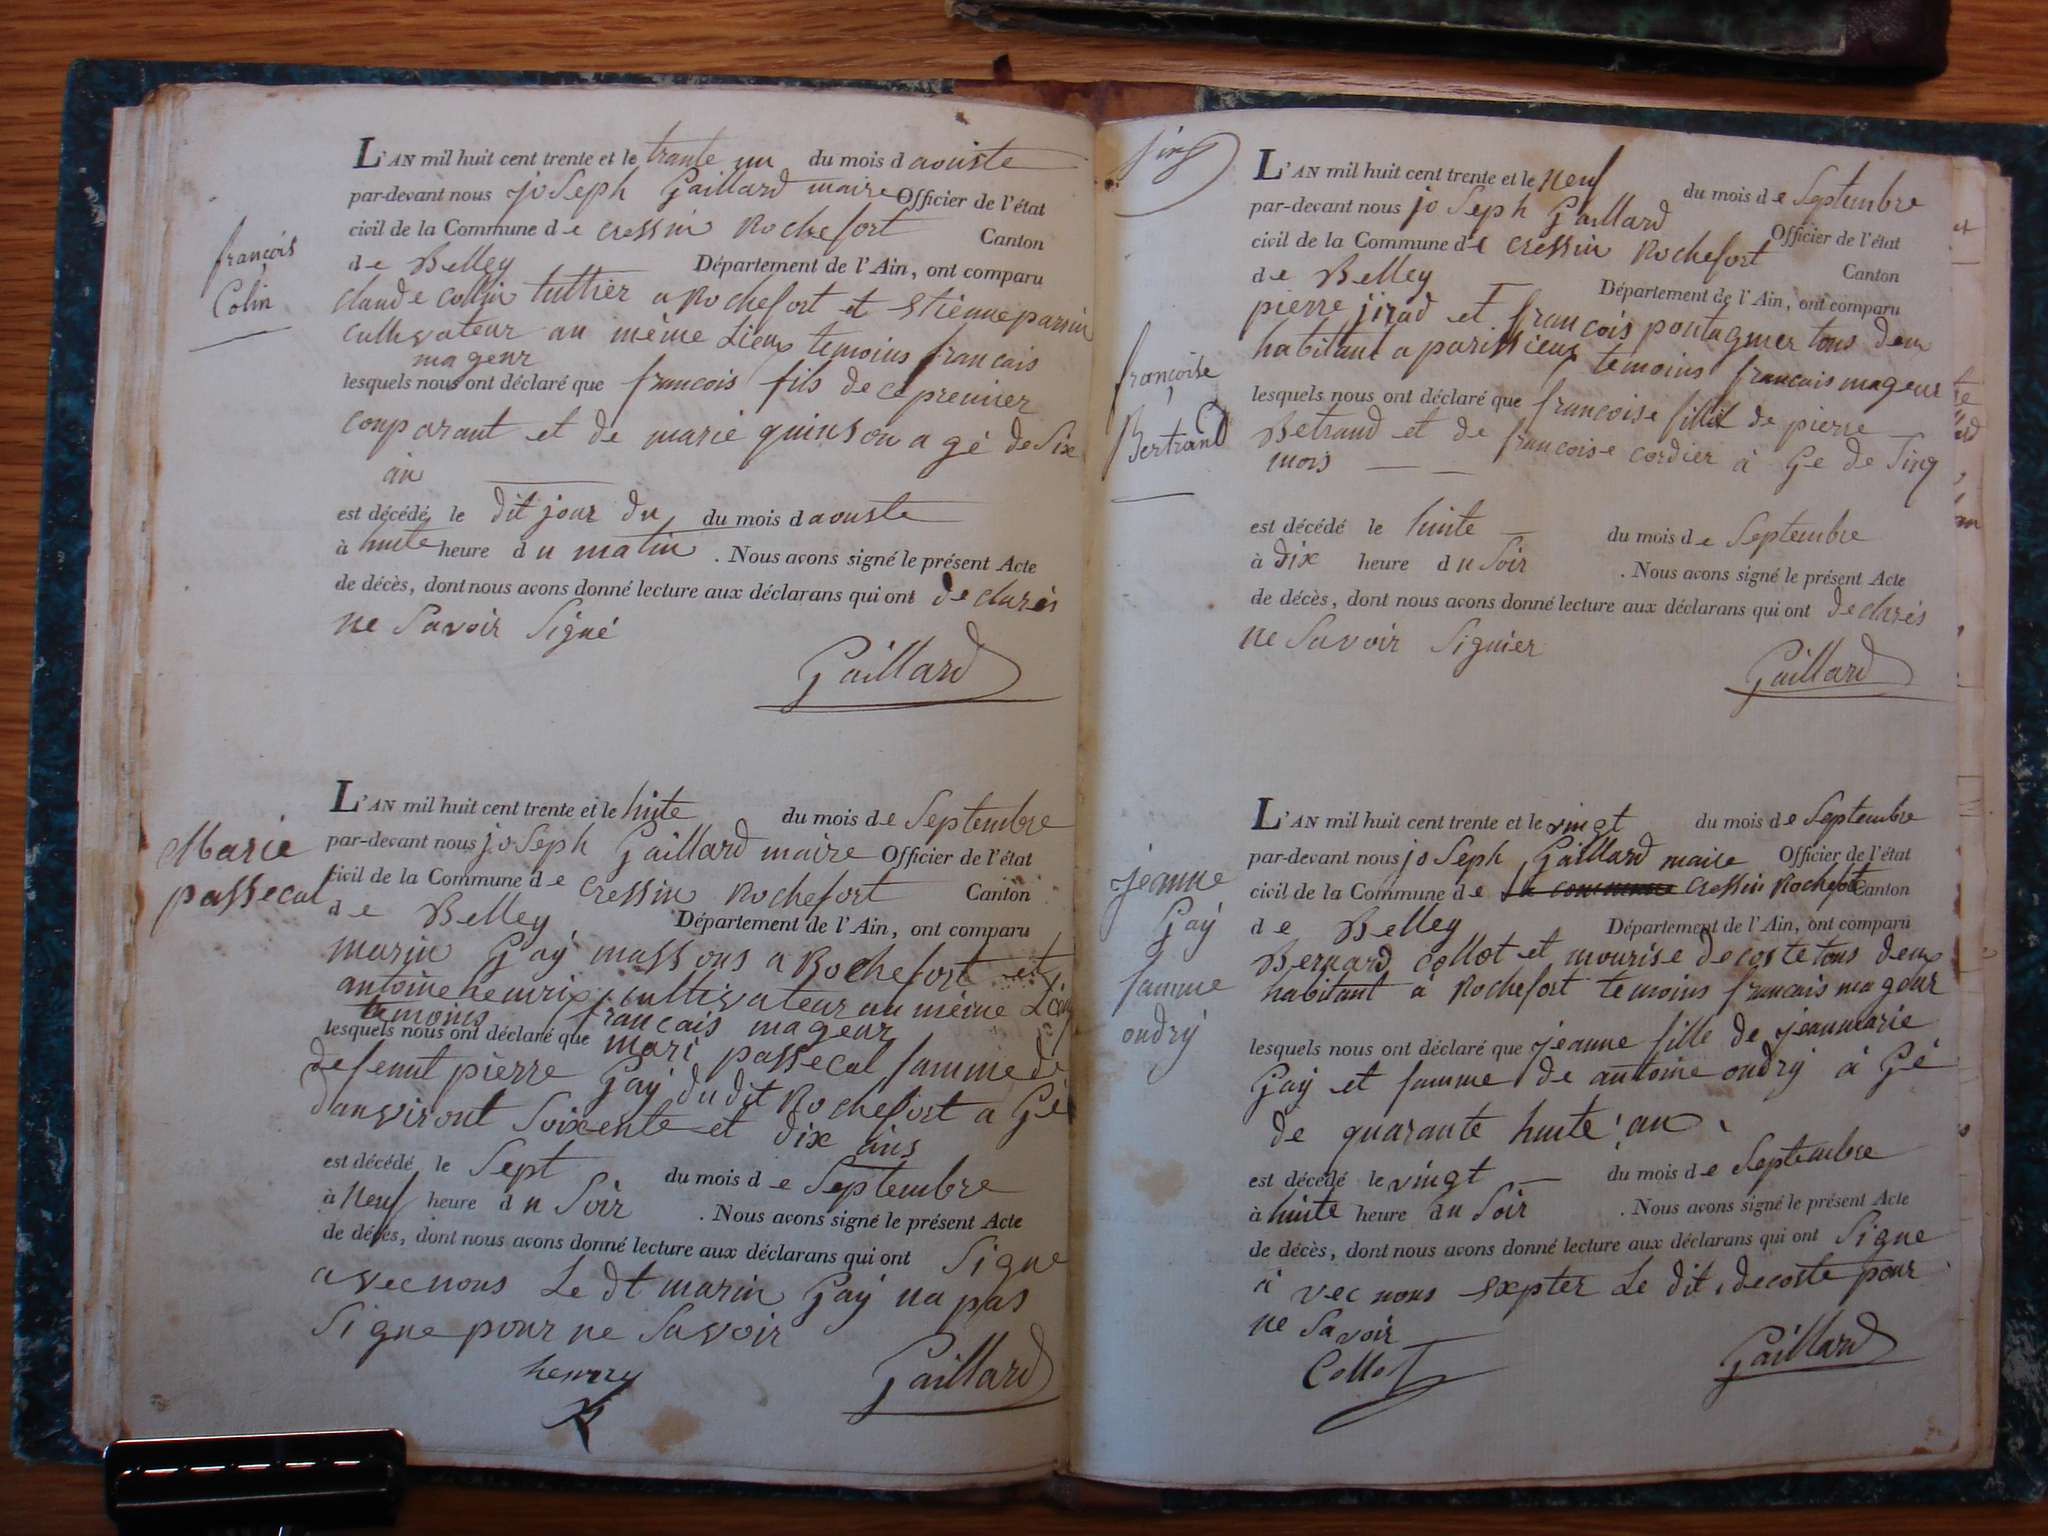 françois
Colin
L'AN mil huit cent trente et le trante un du mois d aouiste
par-devant nous joseph Gaillard maire Officier de l'état
civil de la Commune de cressin Rochefort Canton
de Belley Département de l'Ain, ont comparu
claude collin tuttier a Rochefort et Etienne parsin
cultivateur au même Lieux temoins francais
mageur
lesquels nous ont déclaré que francois fils de ce premier
conparant et de marie quinson a gé de Six
an
est décédé le dit jour du du mois d aouste
à huite heure du matin . Nous avons signé le présent Acte
de décès, dont nous avons donné lecture aux déclarans qui ont declarés
ne Savoir Signé
Gaillard
Marie
passecal
L'AN mil huit cent trente et le huite du mois de Septembre
par-devant nous joseph Gaillard maire Officier de l'état
civil de la Commune de cressin Rochefort Canton
de Belley Département de l'Ain, ont comparu
marin Gaÿ massons a Rochefort et
antoine henrix cultivateur au même Lieu
temoins francais mageur
lesquels nous ont déclaré que mari passecal famme de
defeunt pierre Gaÿ du dit Rochefort a Gé
danviront Soixente et dix ans
est décédé le Sept du mois de Septembre
à Neuf heure du Soir . Nous avons signé le présent Acte
de décès, dont nous avons donné lecture aux déclarans qui ont Signe
avec nous Le dt marin Gaÿ na pas
Signe pour ne Savoir
henrry
Gaillard
françoise
Bertrand
L'AN mil huit cent trente et le Neuf du mois de Septembre
par-devant nous joseph Gaillard Officier de l'état
civil de la Commune de cressin Rochefort Canton
de Belley Département de l'Ain, ont comparu
pierre jirad et francois pontagnier tous deux
habitant a parissieux temoins francais mageur
lesquels nous ont déclaré que francoise fille de pierre
Betrand et de francoise cordier à Ge de Sinq
mois
est décédé le huite du mois de Septembre
à Dix heure du Soir . Nous avons signé le présent Acte
de décès, dont nous avons donné lecture aux déclarans qui ont declarés
ne Savoir Signier
Gaillard
jeanne
Gaÿ
famme
ondrÿ
L'AN mil huit cent trente et le vingt du mois de Septembre
par-devant nous joseph Gaillard maire Officier de l'état
civil de la Commune de la commune cressin Rochefort Canton
de Belley Département de l'Ain, ont comparu
Bernard collot et mourise decoste tous deux
habitant à Rochefort temoins francais mageur
lesquels nous ont déclaré que jeanne fille de jeanmarie
Gaÿ et famme de antoine ondrÿ à Gé
de quarante huite an
est décédé le vingt du mois de Septembre
à huite heure du Soir . Nous avons signé le présent Acte
de décès, dont nous avons donné lecture aux déclarans qui ont Signe
à vec nous expter Le dit decoste pour
ne Savoir
Collot
Gaillard